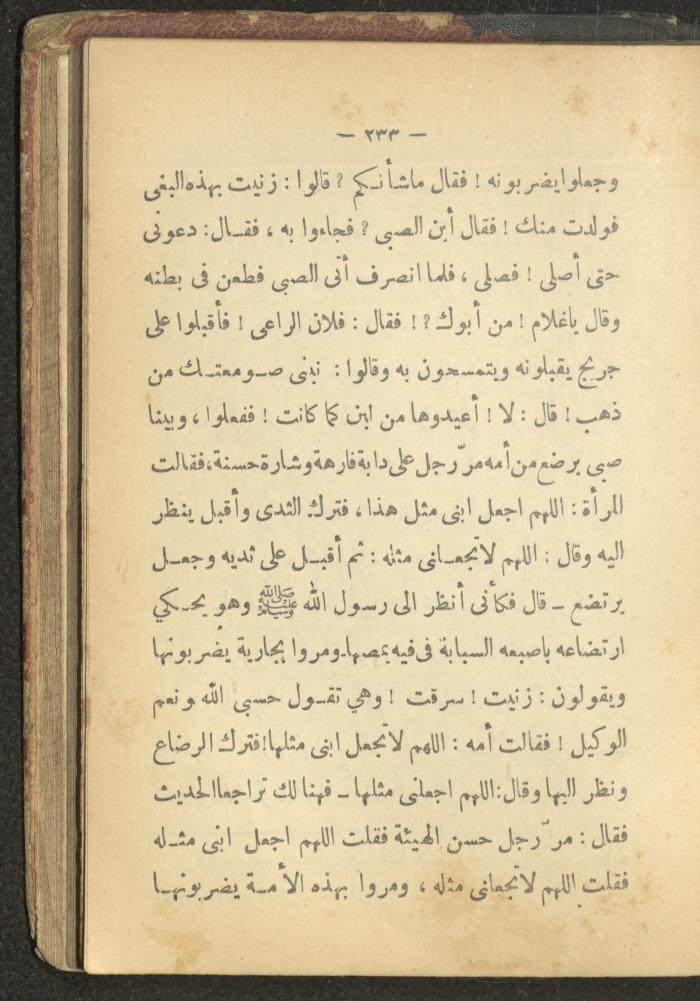 — ٢٣٣ —
وجعلوا يضربونه ! فقال ماشأنكم ? قالوا : زنيت بهذه البغى
فولدت منك ! فقال أين الصبي ? فجاءوا به ، فقال : دعونى
حتى أصلى ! فصلى ، فلما انصرف أتى الصبي فطعن فى بطنه
وقال ياغلام ! من أبوك ? ! فقال : فلان الراعى ! فأقبلوا على
جريج يقبلونه ويتمسحون به وقالوا : نبنى صومعتك من
ذهب ! قال : لا ! أعيدوها من لبن كما كانت ! ففعلوا ، وبينا
صبى يرضع من أمه مرّ رجل على دابة فارهة وشارة حسنة ، فقالت
المرأة : اللهم اجعل ابنى مثل هذا ، فترك الثدى وأقبل ينظر
اليه وقال : اللهم لاتجعلنى مثله : ثم أقبل على ثديه وجعل
يرتضع ــ قال فكأنى أنظر الى رسول الله ﷺ وهو يحكي
ارتضاعه باصبعه السبابة فى فيه يمصها ــ ومروا بجارية يضربونها
ويقولون : زنيت ! سرقت ! وهي تقول حسبي الله ونعم
الوكيل ! فقالت أمه : اللهم لاتجعل ابنى مثلها ! فترك الرضاع
ونظر اليها وقال : اللهم اجعلنى مثلها ــ فهنا لك تراجعا الحديث
فقال : مرّ رجل حسن الهيئة فقلت اللهم اجعل ابنى مثله
فقلت اللهم لاتجعلنى مثله ، ومروا بهذه الأمة يضربونها